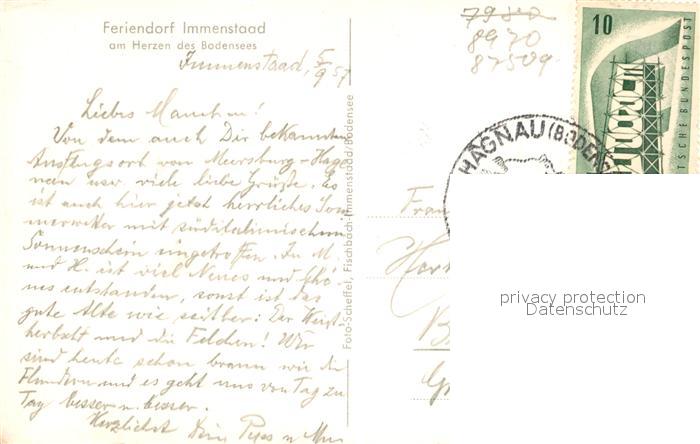 Feriendorf Immenstaad
am Herzen des Bodensees
Immenstaad, 5/9 57
Liebes
Von dem auch Dir bekannten
Ausflugsort von Meersburg - Hag
nau usw. viele liebe Grüße. Es
ist auch hier jetzt herrliches Som
merwetter mit süditalienischem
Sonnenschein eingetroffen. In M.
und H. ist viel Neues und Schö
nes entstanden, sonst ist das
gute Alte wie seither: Der
und die Felchen! Wir
sind heute schon braun wie die
Flundern und es geht uns von Tag zu
Tag besser u. besser.
Herzlichst Dein
Foto-Scheffel, Fischbach-Immenstaad/Bodensee
7980
8970
87509
HAGNAU (BODENS
10
TSCHE BUNDESPOST
Frau
privacy protection
Datenschutz